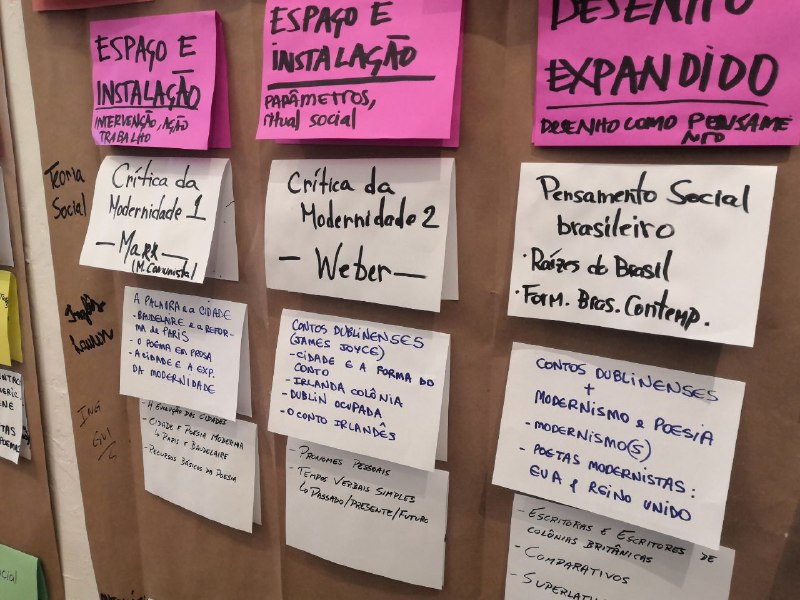 ESPAÇO E
INSTALAÇÃO
INTERVENÇÃO, AÇÃO
TRABALHO
ESPAÇO E
INSTALAÇÃO
PARÂMETROS,
ritual social
DESENHO
EXPANDIDO
DESENHO COMO PENSAME
NTO
Teoria
Social
Crítica da
Modernidade 1
— Marx —
(M. Comunista)
Crítica da
Modernidade 2
— Weber —
Pensamento Social
brasileiro
· Raízes do Brasil
· Form. Bras. Contemp.
Inglês
Lauren
A PALAVRA e a CIDADE
- BAUDELAIRE e a REFOR-
MA de PARIS
- O POEMA EM PROSA
- A CIDADE E A EXP.
DA MODERNIDADE
CONTOS DUBLINENSES
(JAMES JOYCE)
- CIDADE E A FORMA DO
CONTO
- IRLANDA COLÔNIA
- DUBLIN OCUPADA
- O CONTO IRLANDÊS
CONTOS DUBLINENSES
+
MODERNISMO e POESIA
- MODERNISMO(S)
- POETAS MODERNISTAS:
EUA e REINO UNIDO
ING
- A EVOLUÇÃO DAS CIDADES
- CIDADE E POESIA MODERNA
↳ PARIS E BAUDELAIRE
- RECURSOS BÁSICOS DA POESIA
- PRONOMES PESSOAIS
- TEMPOS VERBAIS SIMPLES
↳ PASSADO/PRESENTE/FUTURO
- ESCRITORAS E ESCRITORES DE
COLÔNIAS BRITÂNICAS
- COMPARATIVOS
- SUPERLATI